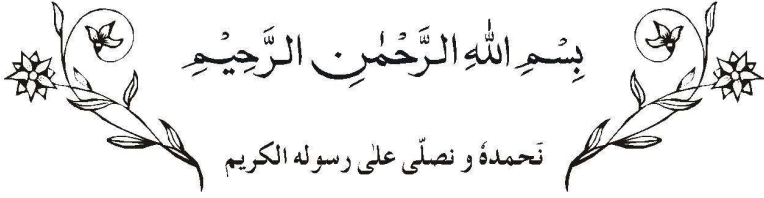 بِسْمِ اللهِ الرَّحْمٰنِ الرَّحِيْمِ
نَحمدهٗ و نصلّی علٰی رسوله الکریم